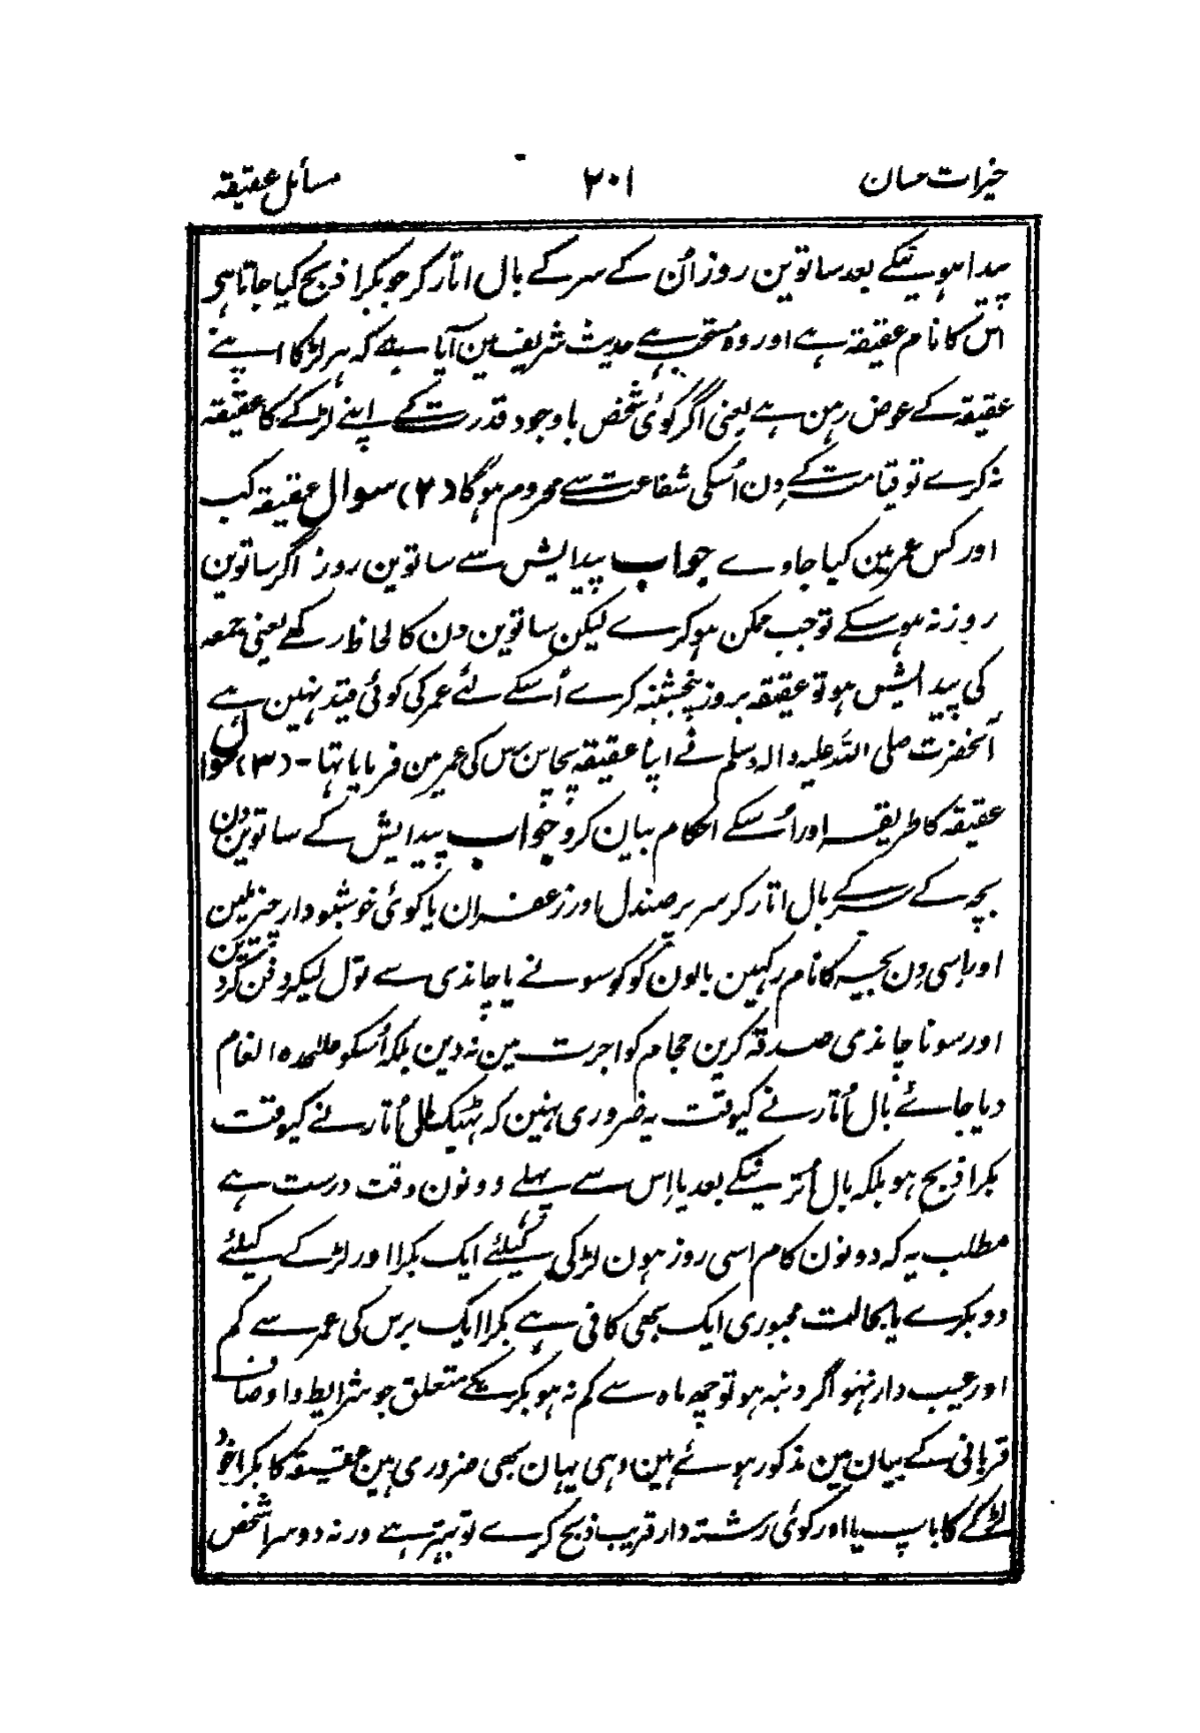 خیرات حسان ۲۰۱ مسائل عقیقہ
پیدا ہونیکے بعد ساتوین روز اُن کے سر کے بال اتار کر جو بکرا ذبح کیا جاتا ہی
اس کا نام عقیقہ ہے اور وہ مستحب ہے حدیث شریف مین آیا ہے کہ ہر لڑکا اپنے
عقیقہ کے عوض رہن ہے یعنی اگر کوئی شخص باوجود قدرت کے اپنے لڑکے کا عقیقہ
نہ کرے تو قیامت کے دن اُسکی شفاعت سے محروم ہوگا (۲) سوال عقیقہ کب
اور کس عمر مین کیا جاوے جواب پیدایش سے ساتوین روز اگر ساتوین
روز نہ ہو سکے تو جب ممکن ہو کرے لیکن ساتوین دن کا لحاظ رکھے یعنی جمعہ
کی پیدایش ہو تو عقیقہ بروز پنجشنبہ کرے اُسکے لئے عمر کی کوئی قید نہین ہے
آنحضرت صلی اللہ علیہ والہ وسلم نے اپنا عقیقہ پچاس برس کی عمر مین فرمایا تہا - (۳) سوال
عقیقہ کا طریقہ اور اُسکے احکام بیان کرو جواب پیدایش کے ساتوین دن
بچہ کے سر کے بال اتار کر سر پر صندل اور زعفران یا کوئی خوشبودار چیز ملین
اور اسی دن بچہ کا نام رکہین بالون کو سونے یا چاندی سے تول لیکر دفن کردین
اور سونا چاندی صدقہ کرین حجام کو اجرت مین نہ دین بلکہ اُسکو علٰحدہ انعام
دیا جائے بال اُتارنے کیوقت یہ ضروری نہین کہ ٹہیک بال اُتارنے کیوقت
بکرا ذبح ہو بلکہ بال اُترنیکے بعد یا اِس سے پہلے دونون وقت درست ہے
مطلب یہ کہ دونون کام اسی روز ہون لڑکی کیلئے ایک بکرا اور لڑکے کیلئے
دو بکرے یا بحالت مجبوری ایک بھی کافی ہے بکرا ایک برس کی عمر سے کم
اور عیب دار نہو اگر دنبہ ہو تو چھ ماہ سے کم نہ ہو بکریکے متعلق جو شرایط و اوصاف
قربانی کے بیان مین مذکور ہوئے ہین وہی یہان بھی ضروری ہین عقیقہ کا بکرا خود
لڑکے کا باپ یا اور کوئی رشتہ دار قریب ذبح کرے تو بہتر ہے ورنہ دوسرا شخص